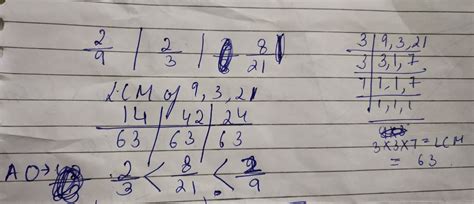 2/9 | 2/3 | 8/21
LCM of 9, 3, 21
14/63 / 42/63 / 24/63
AO→ 2/3 < 8/21 < 2/9
3 | 9, 3, 21
3 | 3, 1, 7
7 | 1, 1, 7
1, 1, 1
3×3×7 = LCM
= 63